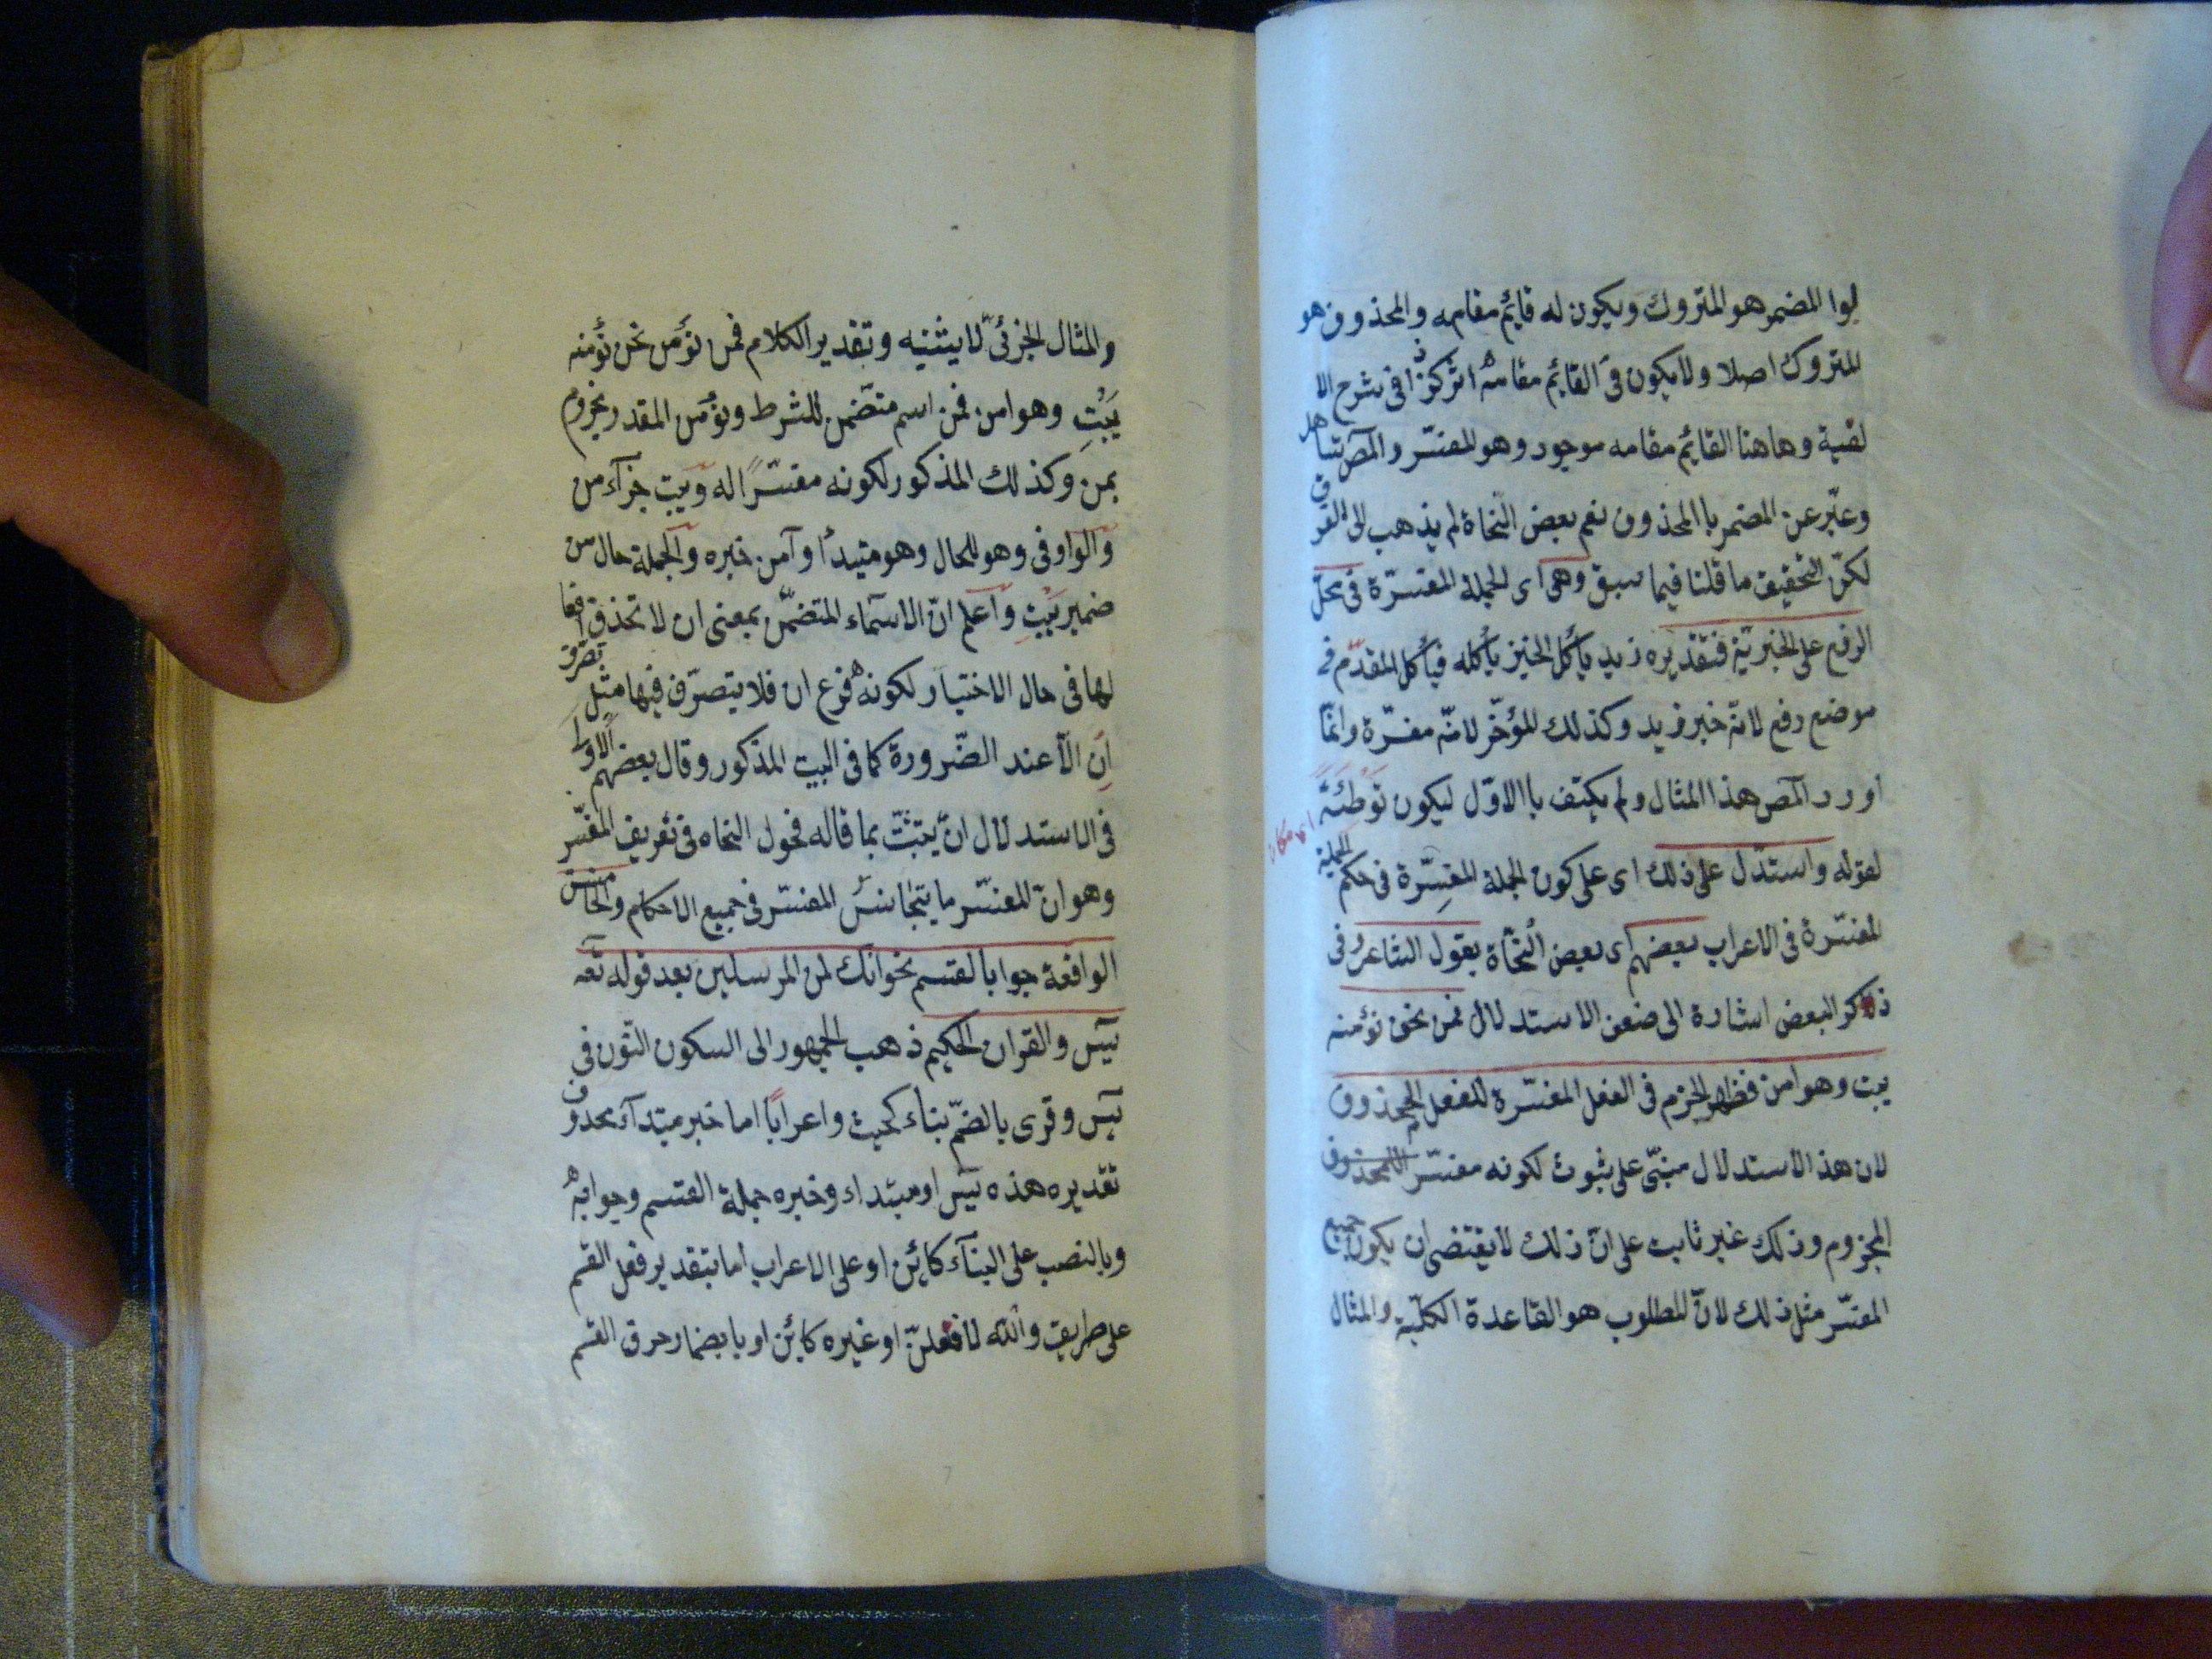 لوا المضمر هو المتروك ويكون له قائم مقامه والمحذوف هو
المتروك اصلا ولا يكون فى القائم مقامه اثر كذا فى شرح الا
لفية وهاهنا القائم مقامه موجود وهو المفسّر والمص تساهل
وعبّر عن المضمر باالمحذوف نعم بعض النحاة لم يذهب الى الفرق
لكنّ التحقيق ما قلنا فيما سبق وهى اى الجملة المفسّرة فى محلّ
الرفع على الخبريّة فتقديره زيد ياٴكل الخبز ياٴكله فياٴكل المقدّم فى
موضع رفع لانّه خبر زيد وكذلك المؤخّر لانّه مفسّرة وانّما
اورد المص هذا المثال ولم يكتف باالاوّل ليكون توطئة
لقوله واستدّل على ذلك اى على كون الجملة المفسِّرة فى حكم الجملة
المفسّرة فى الاعراب بعضهم اى بعض النُّحاة بقول الشاعر وفى
ذكر البعض اشارة الى ضعف الاستدلال فمن نحن نؤمنه
يبت وهو امن فظهر الجزم فى الفعل المفسّرة للفعل المحذوف
لان هذا الاستدلال مبنىّ على ثبوت لكونه مفسّر اللمحذوف
المجزوم وذلك غير ثابت على انّ ذلك لا يقتضى ان يكون جميع
المفسّر مثل ذلك لانّ المطلوب هو القاعدة الكلّية والمثال
والمثال الجزئىّ لا يثنيه وتقدير الكلام فمن نؤمن نحن نؤمنه
يَبِتِ وهو امن فمن اسم متضّمن للشرط ونؤمن المقدر مجزوم
بمن وكذلك المذكور لكونه مفسّرًا له ويبت جزآء من
والواو فى وهو للحال وهو مبتدأ وآمن خبره والجملة حال من
ضمير يَبِتِ واعلم انّ الاسمآء المتضمّن بمعنى ان لا تحذف افعا
لها فى حال الاختيار لكونه فرع ان فلا يتصرّف فيها مثل تصرّف
اِن الاّ عند الضّرورة كما فى البيت المذكور وقال بعضهم الاولى
فى الاستدلال ان يتثبّت بما قاله فحول النحاه فى تعريف المفسّر
وهو انّ المفسّر ما يتجانس المفسّر فى جميع الاحكام والخامس
الواقعة جوابا لقسم نحو انك لمن المرسلين بعد قوله تعه
يٓس والقران الحكيم ذهب الجمهور الى السكون النّون فى
يٓس وقرى بالضمّ بناء كحيث واعرابًا اما خبر مبتدآء محذوف
تقديره هذه يٓس او مبتداء وخبره جملة القسم وجوابه
وبالنصب على البنآء كائن او على الاعراب اما بتقدير فعل القسم
على طريق واللّه لافعلنّ او غيره كائن او باضمار حرف القسم